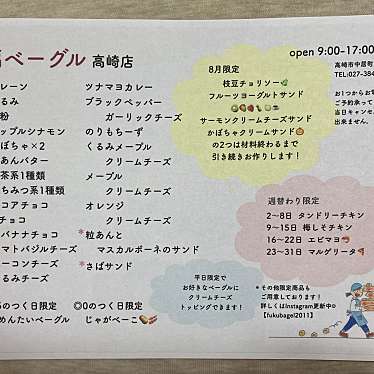 ベーグル 高崎店
open 9:00-17:00
高崎市中居町
TEL:027-384
お1つからお
ご予約承って
当日キャン
出来ません。
レーン
るみ
粉
ップルシナモン
ぼちゃ×2
あんバター
茶系1種類
ちみつ系1種類
コアチョコ
チョコ
バナナチョコ
マトバジルチーズ
ーコンチーズ
るみチーズ
ツナマヨカレー
ブラックペッパー
ガーリックチーズ
のりもちーず
くるみメープル
クリームチーズ
メープル
クリームチーズ
オレンジ
クリームチーズ
*粒あんと
マスカルポーネのサンド
*さばサンド
のつく日限定
めんたいベーグル
◎0のつく日限定
じゃがべーこ
8月限定
枝豆チョリソー
フルーツヨーグルトサンド
サーモンクリームチーズサンド
かぼちゃクリームサンド
の2つは材料終わるまで
引き続きお作りします!
週替わり限定
2~8日 タンドリーチキン
9~15日 梅しそチキン
16~22日 エビマヨ
23~31日 マルゲリータ
平日限定で
お好きなベーグルに
クリームチーズ
トッピングできます!
*その他限定商品も
ご用意しております!
詳しくはInstagram更新中
【fukubagel2011】